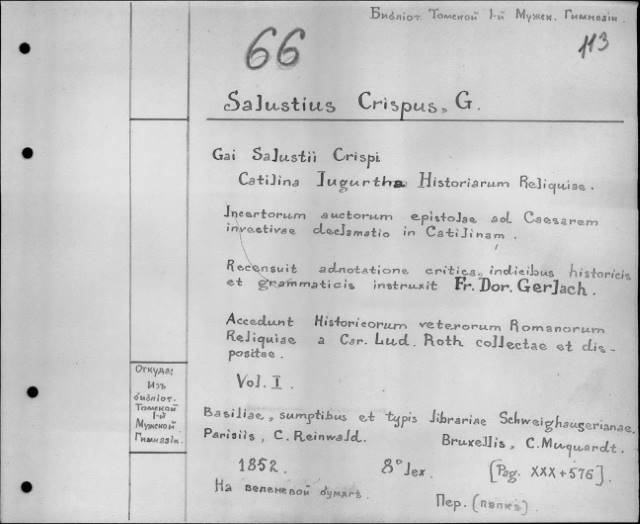 Библіот. Томской I-й Мужск. Гимназіи.
66
113
Salustius Crispus, G.
Gai Salustii Crispi
Catilina Iugurtha Historiarum Reliquiae.
Incertorum auctorum epistolae ad Caesarem
invectivae declamatio in Catilinam.
Recensuit adnotatione critica, indicibus historicis
et grammaticis instruxit Fr. Dor. Gerlach.
Accedunt Historicorum veterorum Romanorum
Reliquiae a Car. Lud. Roth collectae et dis-
positae.
Vol. I.
Откуда:
Изъ
библіот.
Томской
I-й
Мужской
Гимназіи.
Basiliae, sumptibus et typis librariae Schweighauserianae.
Parisiis, C. Reinwald. Bruxellis, C. Muquardt.
1852. 8° lex. [Pag. XXX+576].
На веленевой бумагѣ. Пер. (папкъ)